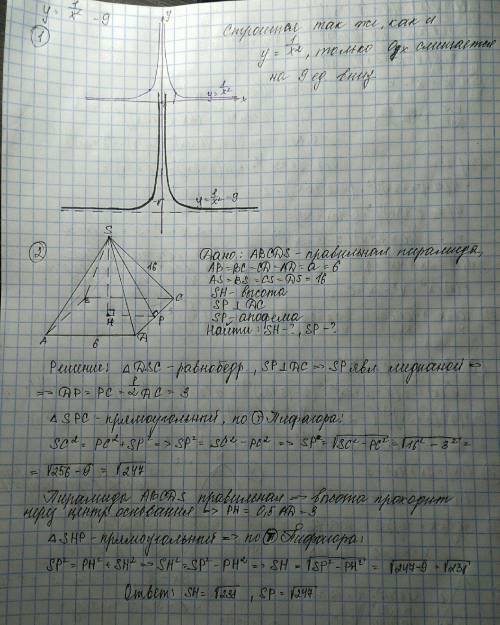 y = 1/x² - 9
① y
Строится так же, как и
y = 1/x², только Ox смещается
на 9 ед. вниз
y = 1/x²
x
y = 1/x² - 9
②
S
16
B
C
H
P
A
6
D
Дано: ABCDS - правильная пирамида,
AB = BC = CD = AD = a = 6
AS = BS = CS = DS = 16
SH - высота
SP ⊥ DC
SP - апофема
Найти: SH - ?, SP - ?
Решение: △DSC - равнобедр, SP ⊥ DC => SP явл. медианой =>
=> DP = PC = 1/2 DC = 3
△SPC - прямоугольный, по Т Пифагора:
SC² = PC² + SP² => SP² = SC² - PC² => SP = √SC² - PC² = √16² - 3² =
= √256 - 9 = √247
Пирамида ABCDS правильная => высота проходит
через центр основания => PH = 0,5 AD = 3
△SHP - прямоугольный => по Т Пифагора:
SP² = PH² + SH² => SH² = SP² - PH² => SH = √SP² - PH² = √247 - 9 = √238
Ответ: SH = √238, SP = √247